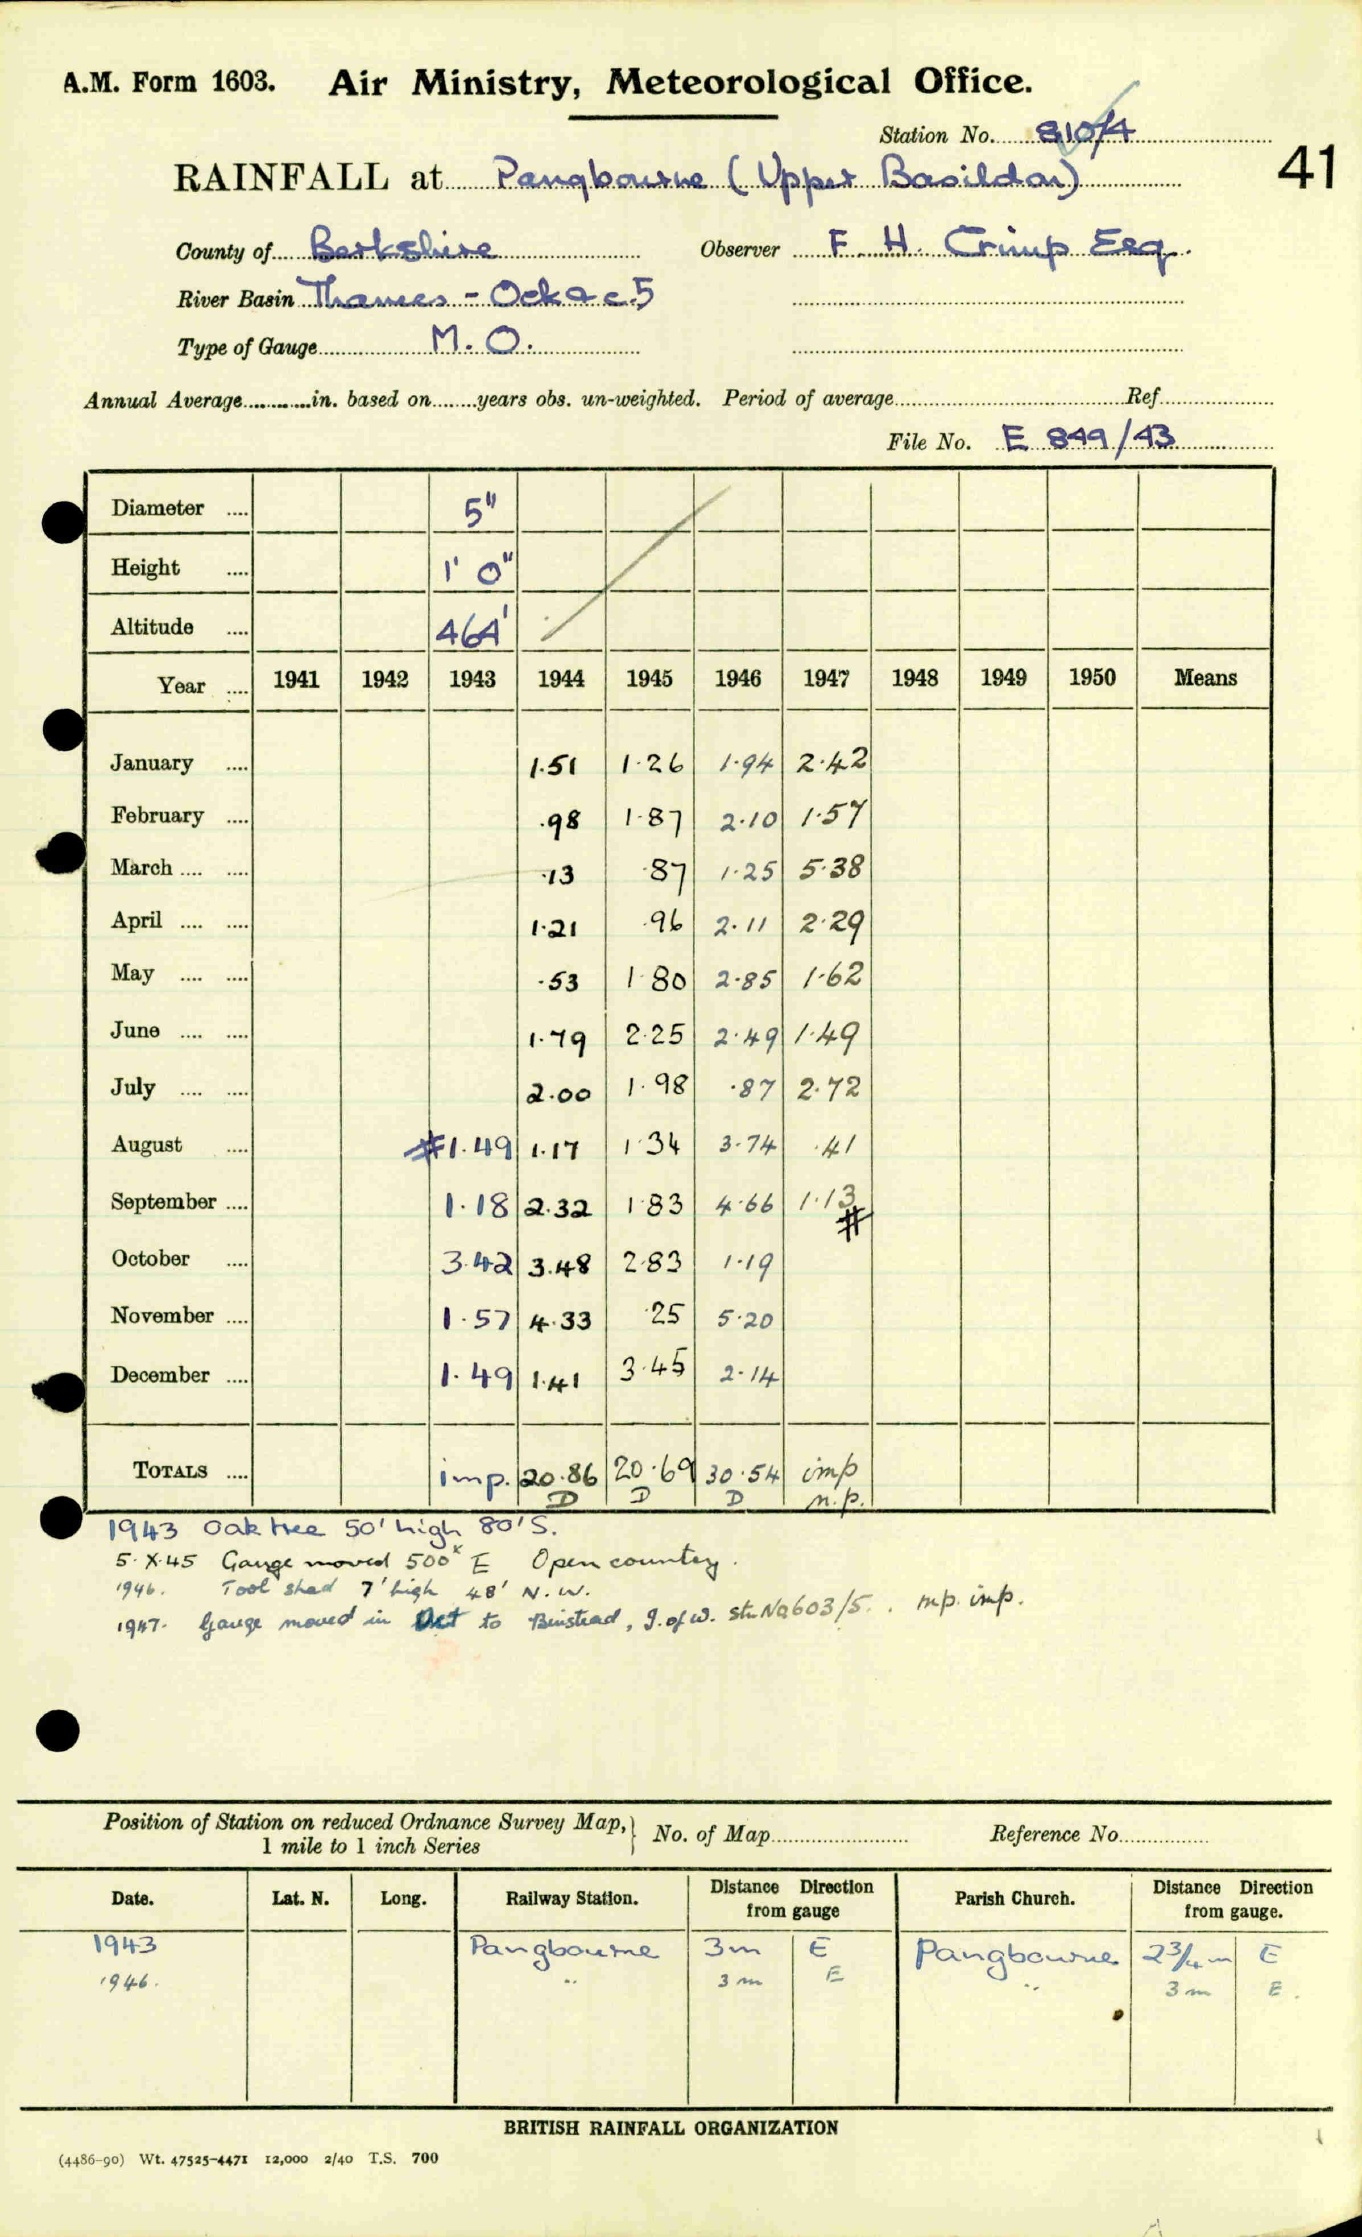 A.M. Form 1603. Air Ministry, Meteorological Office.
Station No. 810/4
41
RAINFALL at Pangbourne (Upper Basildon)
County of Berkshire Observer F. H. Crimp Esq.
River Basin Thames - Ock &c. 5
Type of Gauge M. O.
Annual Average in. based on years obs. un-weighted. Period of average Ref
File No. E 849/43
Diameter .... 5"
Height .... 1' 0"
Altitude .... 464'
Year .... 1941 1942 1943 1944 1945 1946 1947 1948 1949 1950 Means
January .... 1.51 1.26 1.94 2.42
February .... .98 1.87 2.10 1.57
March .... .... .13 .87 1.25 5.38
April .... .... 1.21 .96 2.11 2.29
May .... .... .53 1.80 2.85 1.62
June .... .... 1.79 2.25 2.49 1.49
July .... .... 2.00 1.98 .87 2.72
August .... #1.49 1.17 1.34 3.74 .41
September .... 1.18 2.32 1.83 4.66 1.13
#
October .... 3.42 3.48 2.83 1.19
November .... 1.57 4.33 .25 5.20
December .... 1.49 1.41 3.45 2.14
TOTALS .... imp. 20.86 20.69 30.54 imp
D D D n.p.
1943 Oak tree 50' high 80' S.
5.X.45 Gauge moved 500x E Open country.
1946. Tool shed 7' high 48' N.W.
1947. Gauge moved in Oct to Binstead, I. of W. stn No 603/5. mp. imp.
Position of Station on reduced Ordnance Survey Map,
1 mile to 1 inch Series } No. of Map Reference No
Date. Lat. N. Long. Railway Station. Distance Direction from gauge Parish Church. Distance Direction from gauge.
1943 Pangbourne 3m E Pangbourne 2¾m E
1946. " 3m E " 3m E.
BRITISH RAINFALL ORGANIZATION
(4486-90) Wt. 47525-4471 12,000 2/40 T.S. 700